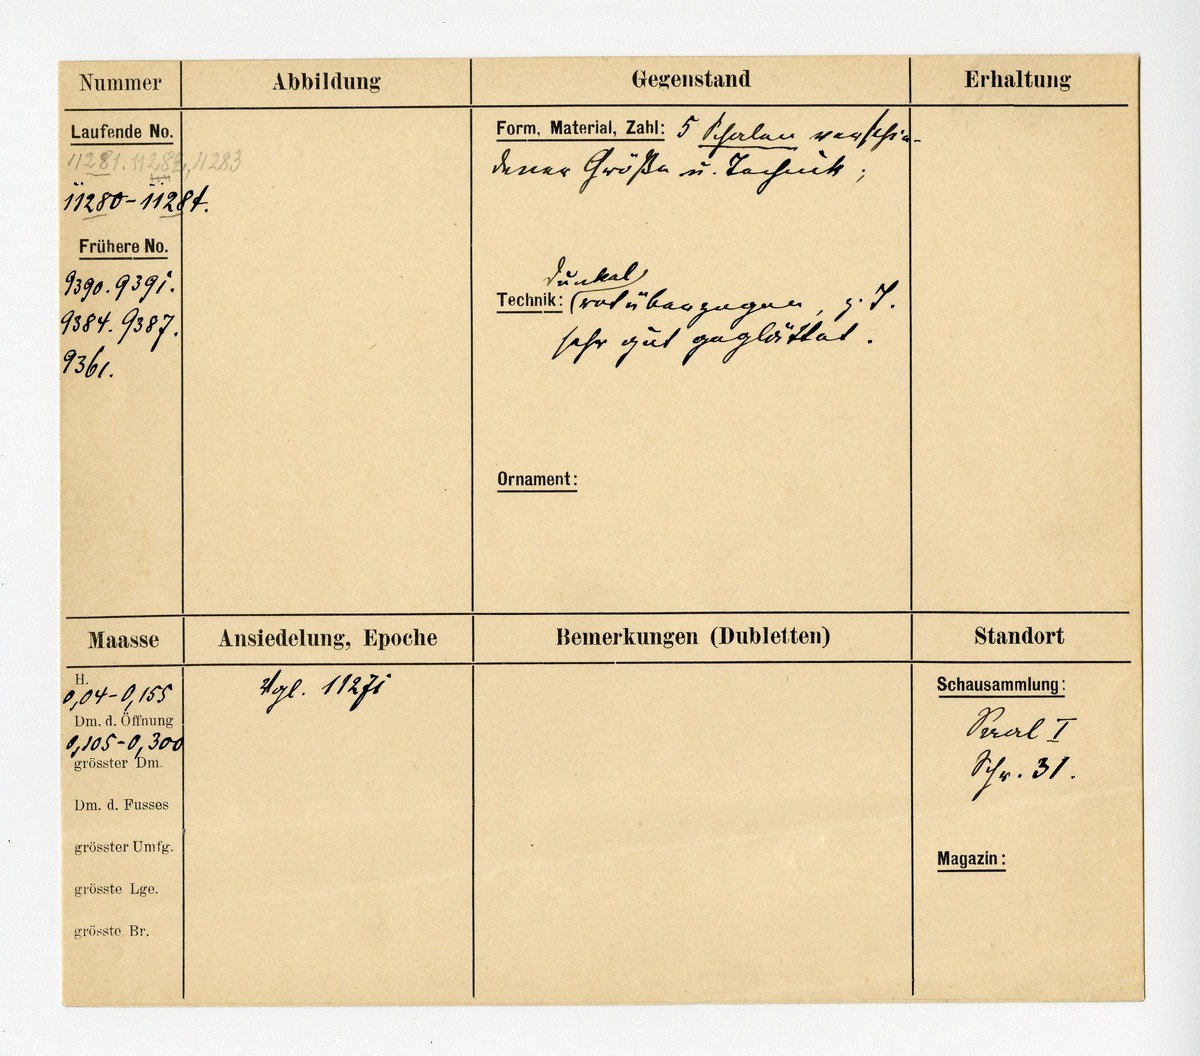 Nummer
Abbildung
Gegenstand
Erhaltung
Laufende No.
11281. 11282, 11283
11280-11284.
Frühere No.
9390. 9391.
9384. 9387.
9361.
Form, Material, Zahl: 5 Schalen verschie-
dener Größe u. Technik;
dunkel
Technik: rot überzogen, z. T.
sehr gut geglättet.
Ornament:
Maasse
H.
0,04-0,155
Dm. d. Öffnung
0,105-0,300
grösster Dm.
Dm. d. Fusses
grösster Umfg.
grösste Lge.
grösste Br.
Ansiedelung, Epoche
Vgl. 11271
Bemerkungen (Dubletten)
Standort
Schausammlung:
Saal I
Schr. 31.
Magazin: